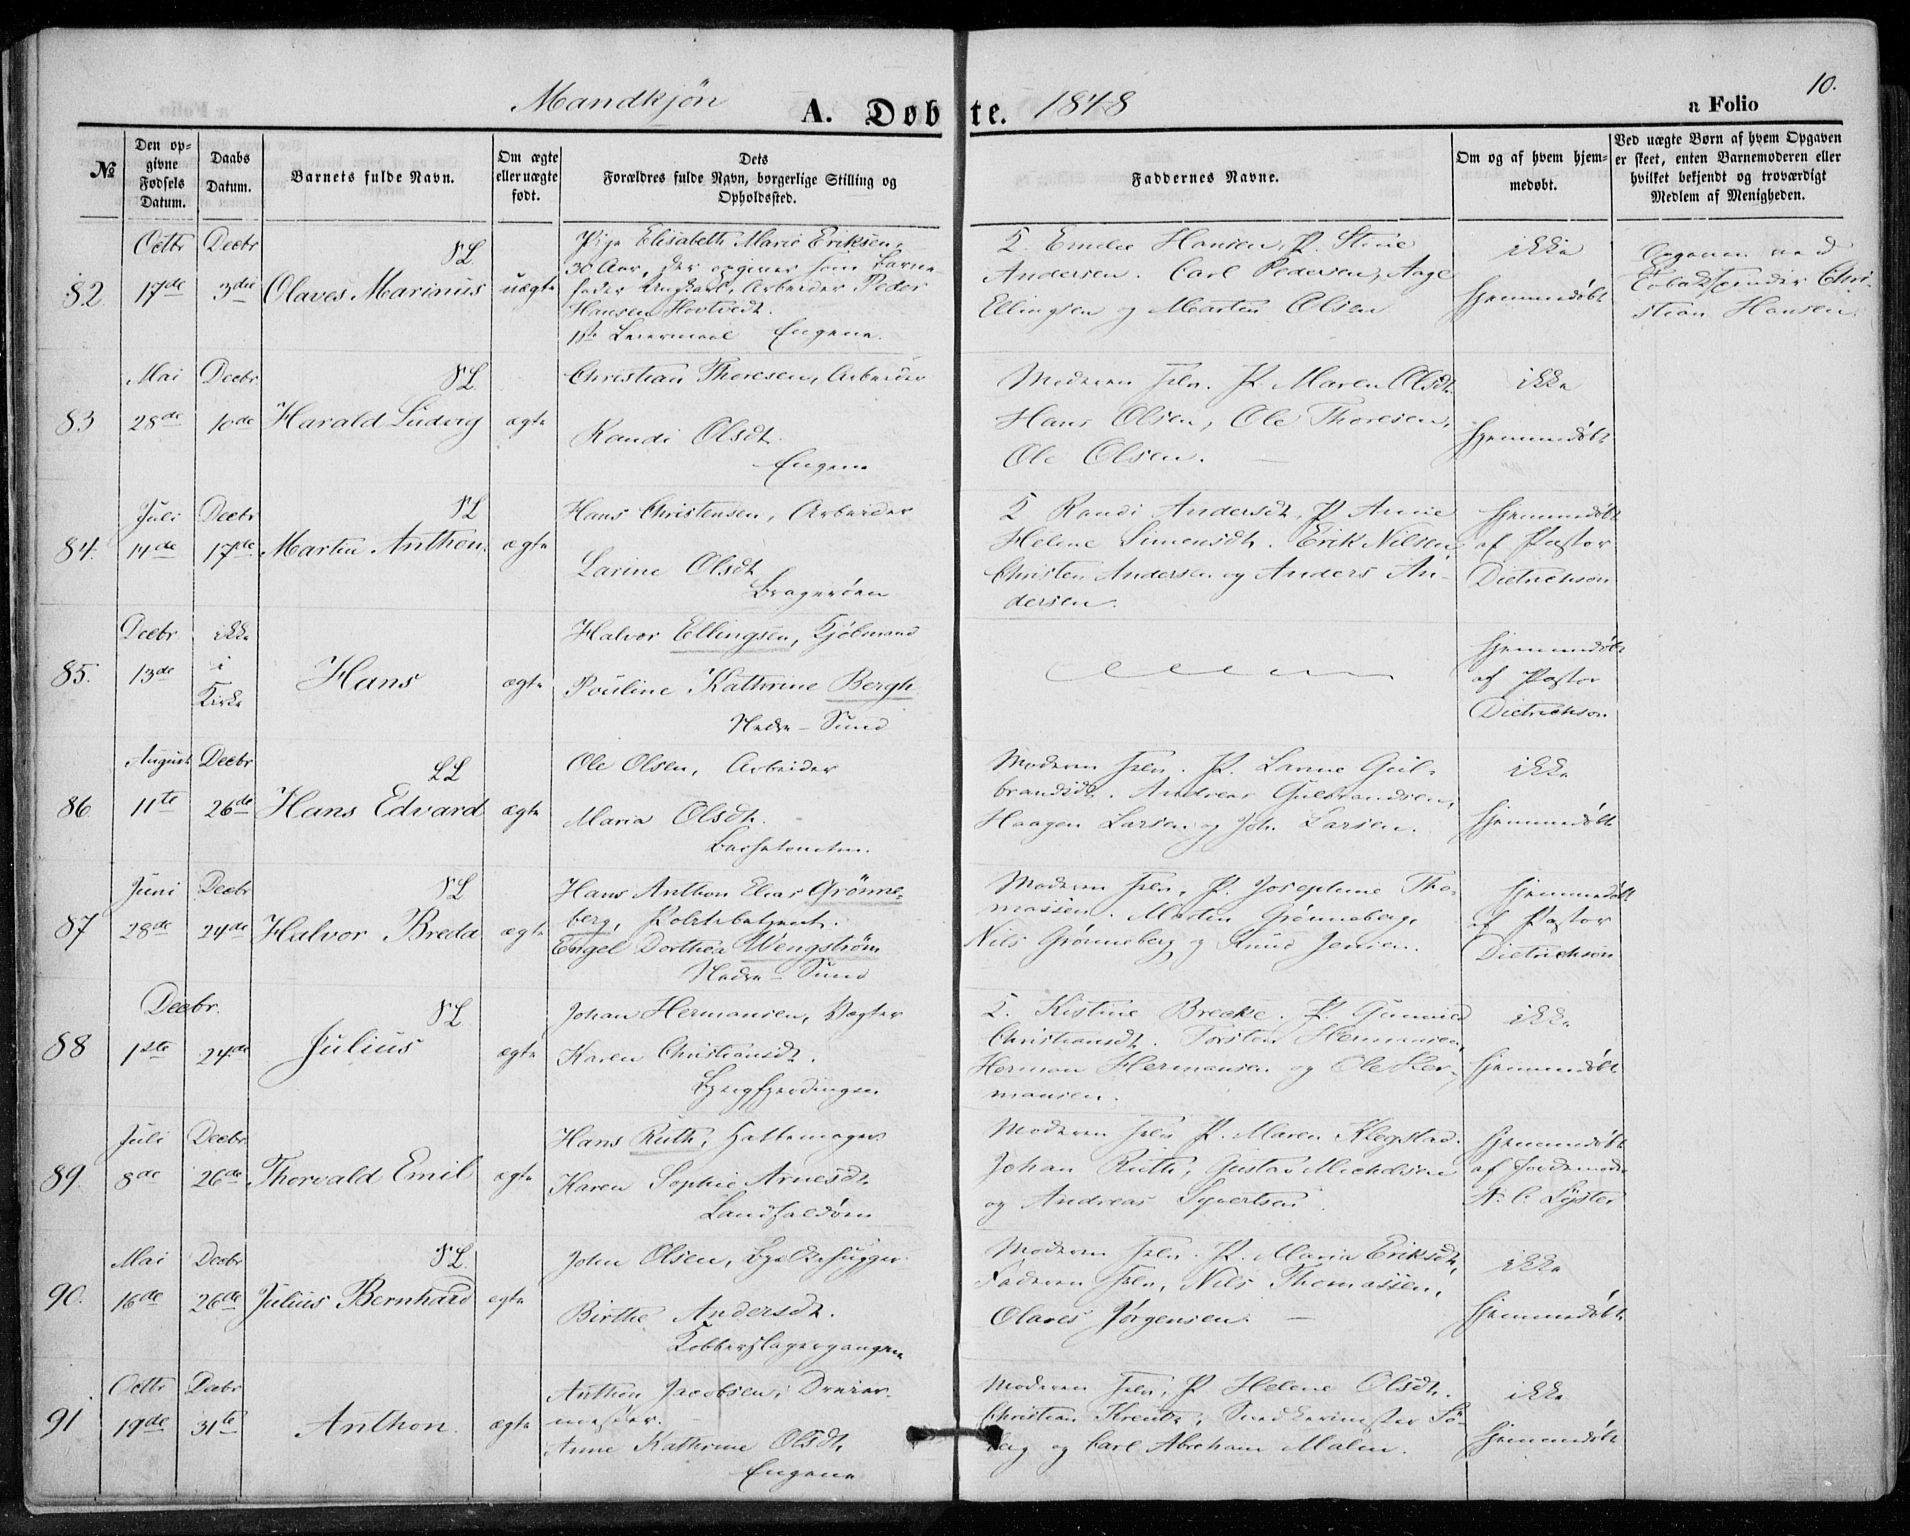 10.
Mandkjön A. Døbte. 1848 a Folio
№
Den opgivne Fødsels Datum.
Daabs Datum.
Barnets fulde Navn.
Om ægte eller uægte født.
Dets Forældres fulde Navn, borgerlige Stilling og Opholdssted.
Faddernes Navne.
Om og af hvem hjemmedøbt.
Ved uægte Børn af hvem Opgaven er skeet, enten Barnemoderen eller hvilket bekjendt og troværdigt Medlem af Menigheden.
82 Octbr 17de
Decbr 3die
Olaves Marinus
uægte
Pige Elisabeth Marie Eriksen,
30 Aar, der opgiver som Barne-
fader Ungkarl, Arbeider Peder
Hansen Hovtvedt.
1ste Leiermaal Engene.
Emilie Hansen, P. Stine
Andersen. Carl Pedersen, Aage
Ellingsen og Morten Olsen
ikke
hjemmedøbt
Opgaven ved
Tobaksspinder Chri-
stian Hansen.
83 Mai 28de
Decbr 10de
Harald Ludvig
ægte
Christian Thoresen, Arbeider
Randi Olsdt.
Engene
Moderen selv. P. Maren Olsdt.
Hans Olsen, Ole Thoresen,
Ole Olsen.
ikke
hjemmedøbt
84. Juli 14de
Decbr 17de
Martin Anthon.
ægte
Hans Christensen, Arbeider
Larine Olsdt.
Bragerøen
Randi Andersdt, P. Anne
Helene Simensdt. Erik Nilsen,
Christen Andersen og Anders An-
dersen.
hjemmedøbt
af Pastor
Dietrichson
85. Decbr 13de
ikke
i
Kirke
Hans
ægte
Halvor Ellingsen, Kjøbmand
Pouline Kathrine Bergh
Nedre-Sund
hjemmedøbt
af Pastor
Dietrichson
86 August 11te
Decbr 26de
Hans Edvard
ægte
Ole Olsen, Arbeider
Maria Olsdt.
Moderen selv. P. Gul-
brandsdt. Andreas Gulbrandsen,
Haagen Larsen og Joh. Larsen.
ikke
hjemmedøbt
87 Juni 28de
Decbr 24de
Halvor Breda
ægte
Hans Anthon Elias Grønne-
berg, Politibetjent.
Engel Dorthea Wengstrøm
Nedre-Sund
Moderen selv, P. Josephine Tho-
massen. Martin Grønneberg,
Nils Grønneberg og Knud Jensen.
hjemmedøbt
af Pastor
Dietrichson
88 Decbr. 1ste
24de
Julius
ægte
Johan Hermansen, Vægter
Karen Christiansdt.
Kistine Brecke. P. Gunnild
Christiansdt. Torsten Hermansen,
Herman Hermansen og Ole Her-
mansen.
ikke
hjemmedøbt
89. Juli 8de
Decbr. 26de
Thorvald Emil
ægte
Hans Ruth, Hattemager
Karen Sophie Arnesdt.
Landfaldøen
Moderen selv P. Maren Klegstad.
Johan Ruth, Gustav Michelsen
og Andreas Syvertsen.
hjemmedøbt
af Jordemoder
N. C. Lyster
90. Mai 16de
Decbr 26de
Julius Bernhard
ægte
John Olsen, Bjelkehugger
Birthe Andersdt.
Kobberslagergangen
Moderen selv. P. Maria Eriksdt,
Faderen selv, Nils Thomassen,
Olaves Jørgensen.
ikke
hjemmedøbt
91 Octbr 19de
Decbr 31te
Anthon.
ægte
Anthon Jacobsen, Dreier-
mester.
Anne Kathrine Olsdt,
Engene
Moderen selv, P Helene Olsdt.
Christian Kreutz, Snedkermester Sö-
berg og Carl Abraham Malm.
ikke
hjemmedøbt